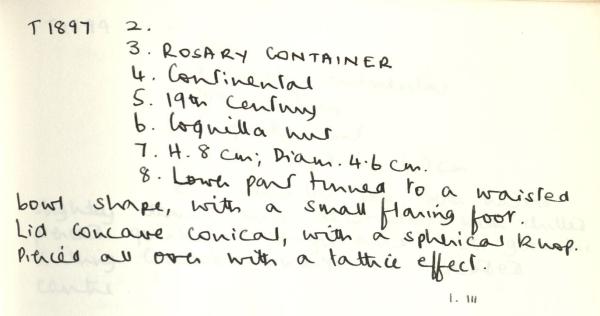 T 1897 2.
3. ROSARY CONTAINER
4. Continental
5. 19th Century
6. Coquilla nut
7. H. 8 cm; Diam. 4.6 cm.
8. Lower part turned to a waisted
bowl shape, with a small flaring foot.
Lid concave conical, with a spherical knop.
Pierced all over with a lattice effect.